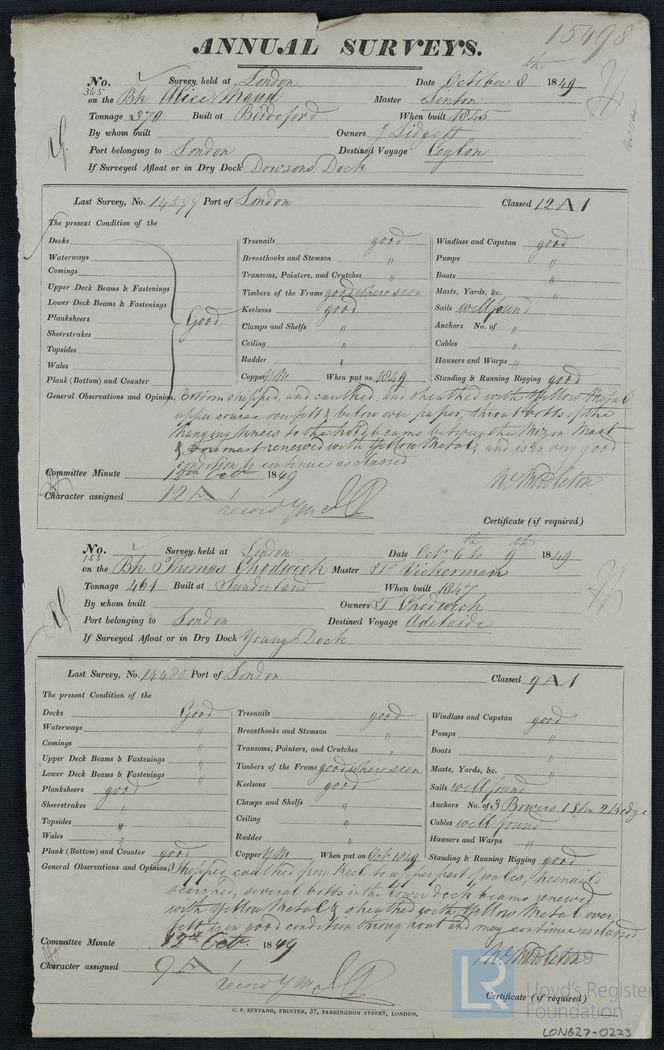 15498
ANNUAL SURVEYS.
No. 365 Survey, held at London Date October 8th 1849
on the Bk Alice Maud Master Senton
Tonnage 270 Built at Biddeford When built 1845
By whom built Owners J Lidgett
Port belonging to London Destined Voyage Ceylon
If Surveyed Afloat or in Dry Dock Dowsons Dock
Last Survey, No. 14577 Port of London Classed 12 A 1
The present Condition of the
Decks
Waterways
Comings
Upper Deck Beams & Fastenings
Lower Deck Beams & Fastenings
Planksheers Good
Sheerstrakes
Topsides
Wales
Plank (Bottom) and Counter
Treenails good
Breasthooks and Stemson "
Transoms, Pointers, and Crutches "
Timbers of the Frame good where seen
Keelsons good
Clamps and Shelfs "
Ceiling "
Rudder "
Copper Y.M. When put on 1849
Windlass and Capstan good
Pumps "
Boats "
Masts, Yards, &c. "
Sails well found
Anchors No. of "
Cables "
Hawsers and Warps "
Standing & Running Rigging good
General Observations and Opinion, Bottom stripped, and caulked, and sheathed with Yellow Metal
upper course over felt & below over paper, throat bolts of the
hanging knees to the hold beams between the Mizen Mast
& Foremast renewed with Yellow Metal, and is in very good
condition to continue as classed
Committee Minute 12th Oct 1849
Wm Middleton
Character assigned 12 A 1
record YM
Certificate (if required)
No. 155 Survey, held at London Date Octr 6th to 9th 1849
on the Bk Thomas Chadwick Master Wm Ackerman
Tonnage 461 Built at Sunderland When built 1847
By whom built Owners T Chadwick
Port belonging to London Destined Voyage Adelaide
If Surveyed Afloat or in Dry Dock Youngs Dock
Last Survey, No. 14480 Port of London Classed 9 A 1
The present Condition of the
Decks Good
Waterways "
Comings "
Upper Deck Beams & Fastenings "
Lower Deck Beams & Fastenings "
Planksheers good
Sheerstrakes "
Topsides "
Wales "
Plank (Bottom) and Counter good
Treenails good
Breasthooks and Stemson "
Transoms, Pointers, and Crutches "
Timbers of the Frame good where seen
Keelsons good
Clamps and Shelfs "
Ceiling "
Rudder "
Copper Y.M. When put on Octr 1849
Windlass and Capstan good
Pumps "
Boats "
Masts, Yards, &c. "
Sails well found
Anchors No. of 3 Bowers 1 Stm 2 Kedge
Cables well found
Hawsers and Warps "
Standing & Running Rigging good
General Observations and Opinion, Stripped, caulked from Keel to upper part of wales, treenails
searched, several bolts in the lower deck beams renewed
with Yellow Metal & sheathed with Yellow Metal over
felt is in good condition throughout and may continue as classed
Committee Minute 12th Oct 1849
Wm Middleton
Character assigned 9 A 1
record YM
Certificate (if required)
C. F. SEYFANG, PRINTER, 57, FARRINGDON STREET, LONDON.
LR Lloyd's Register
Foundation
LON627-0223